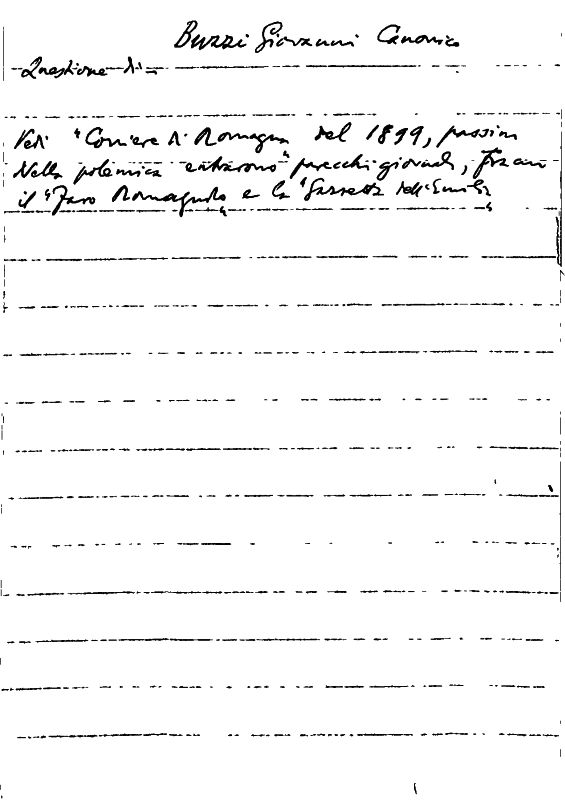 Buzzi Giovanni Canonico
Questione di -
Vedi "Corriere di Romagna" del 1899, passim
Nella polemica entrarono parecchi giornali, fra cui
il "Faro Romagnolo" e la "Gazzetta dell'Emilia"